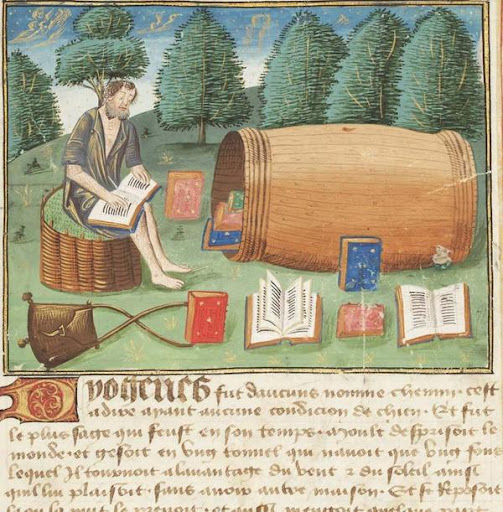 Dyogenes fut daucuns nomme chemin. cest
adire ayant aucune condicion de chien. Et fut
le plus sage qui feust en son temps. Moult desprisoit le
monde. et gesoit en ung tonnel qui nauoit que ung fons
lequel Il tournoit alauantage du vent & du soleil ainsi
quil lui plaisoit. sans auoir autre maison. Et se reposoit
la nuit le prenoit. et quelque part